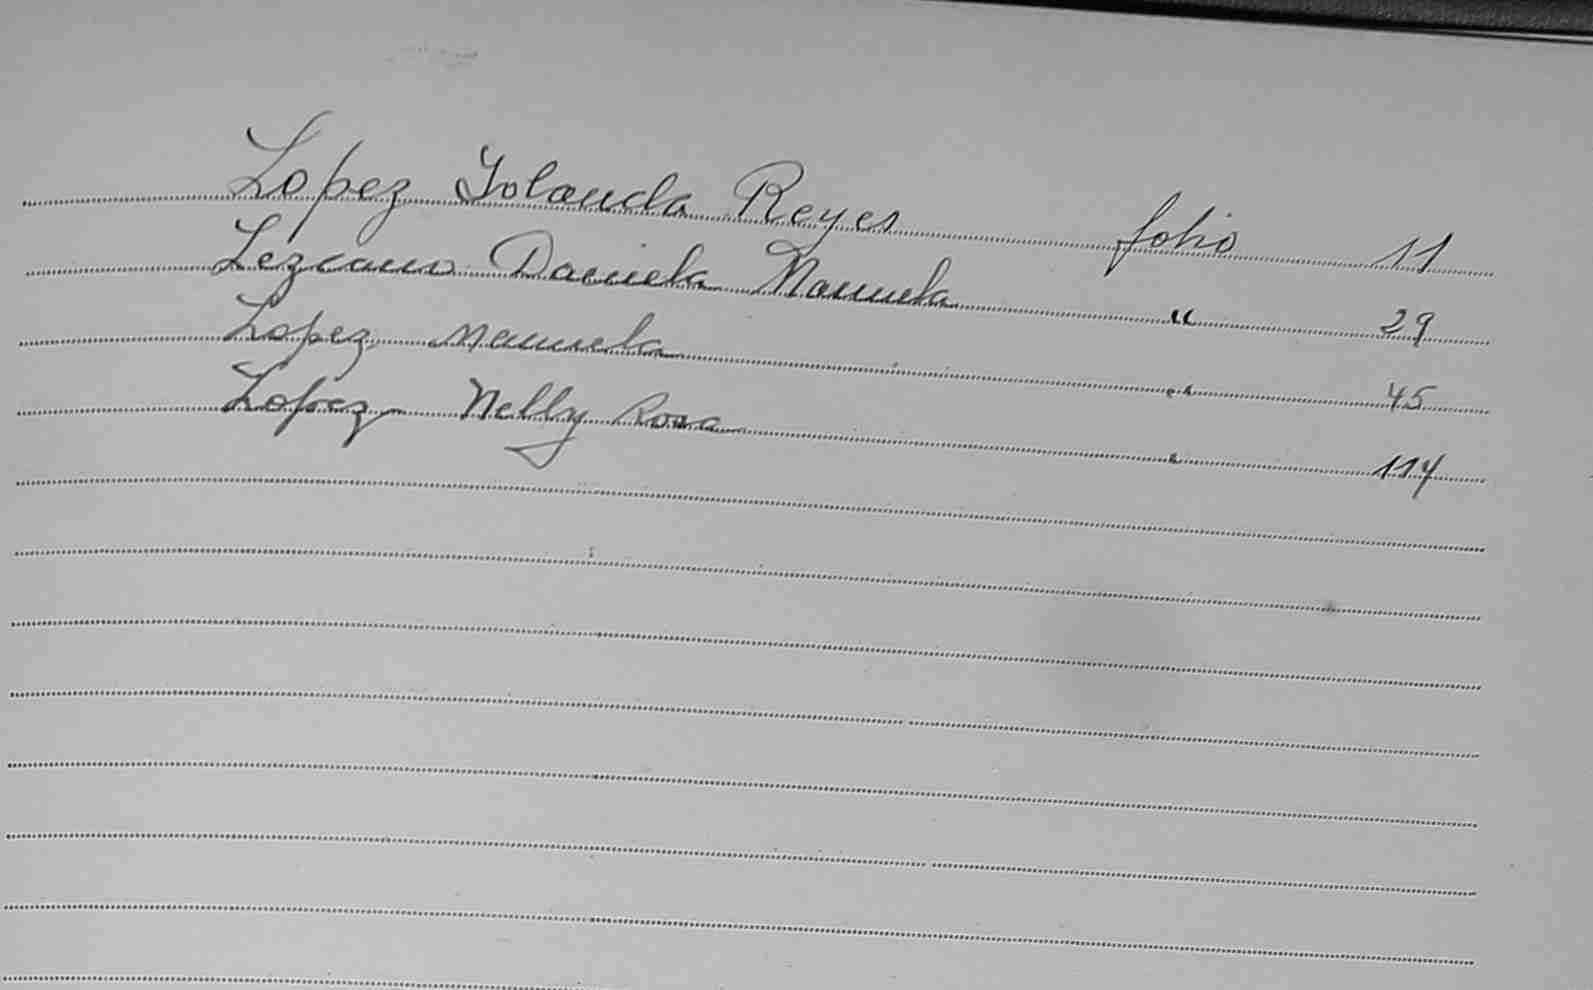 Lopez Yolanda Reyes folio 11
Lezcano Daniela Manuela " 29
Lopez Manuela " 45
Lopez Nelly Rosa " 114